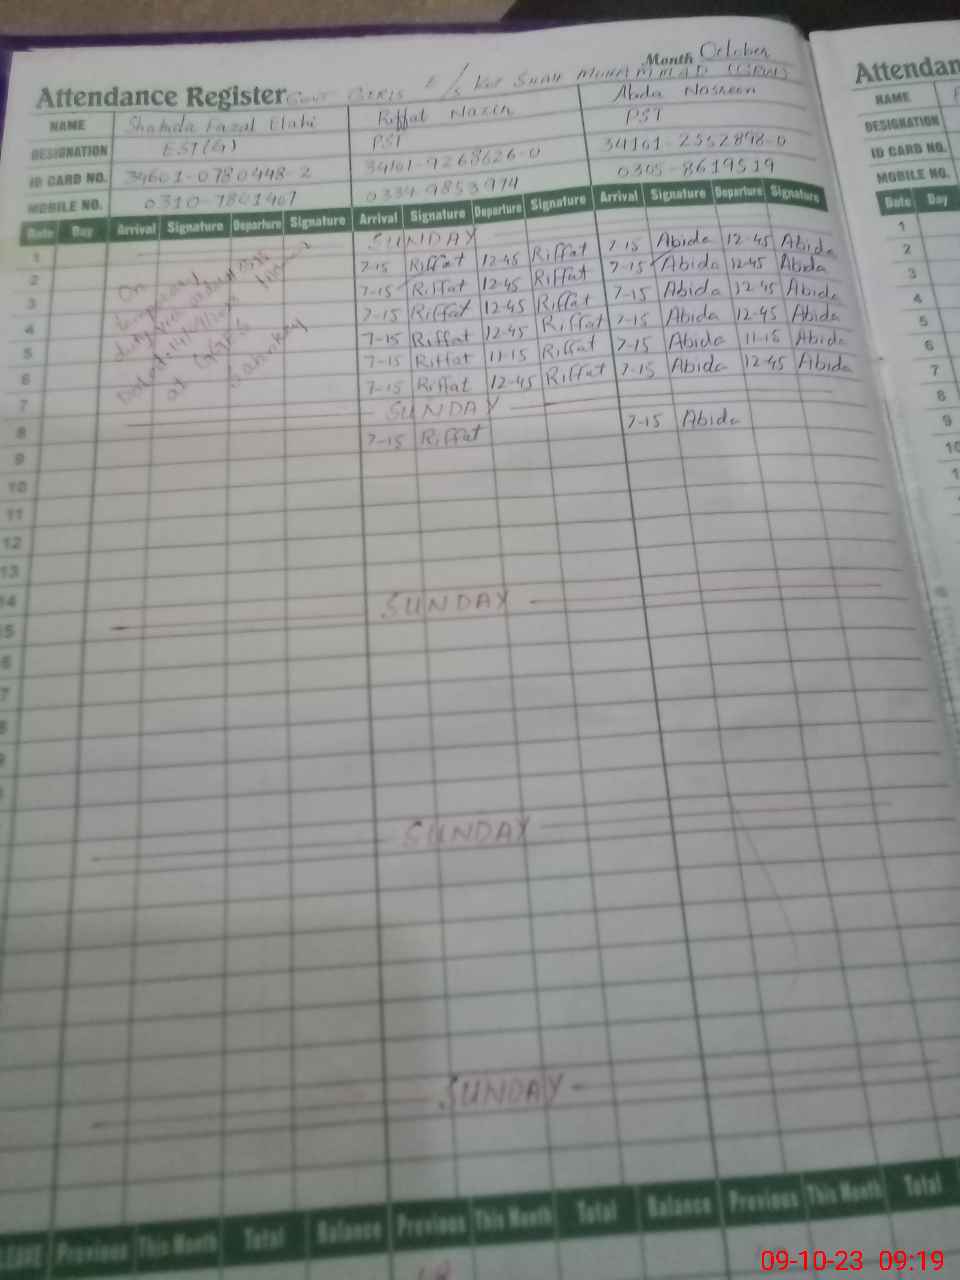 Month October
Attendance Register Govt Girls E/S Kot Shah Muhammad (GRW)
NAME Shahida Fazal Elahi Riffat Nazir Abida Nosheen
DESIGNATION EST(G) PST PST
ID CARD NO. 34601-0780448-2 34101-9268626-0 34101-2552898-0
MOBILE NO. 0310-7801407 0334-9853974 0305-8619519
Date Day Arrival Signature Departure Signature Arrival Signature Departure Signature Arrival Signature Departure Signature
1 SUNDAY
2 7-15 Riffat 12-45 Riffat 7-15 Abida 12-45 Abida
3 7-15 Riffat 12-45 Riffat 7-15 Abida 12-45 Abida
4 7-15 Riffat 12-45 Riffat 7-15 Abida 12-45 Abida
5 7-15 Riffat 12-45 Riffat 7-15 Abida 12-45 Abida
6 7-15 Riffat 11-15 Riffat 7-15 Abida 11-15 Abida
7 7-15 Riffat 12-45 Riffat 7-15 Abida 12-45 Abida
8 SUNDAY
9 7-15 Riffat 7-15 Abida
On
temporary
duty
10
11
12
13
14
SUNDAY
15
SUNDAY
SUNDAY
LEAVE Previous This Month Total Balance Previous This Month Total Balance Previous This Month Total
Attendan
NAME
DESIGNATION
ID CARD NO.
MOBILE NO.
Date Day
1
2
3
4
5
6
7
8
9
10
09-10-23 09:19